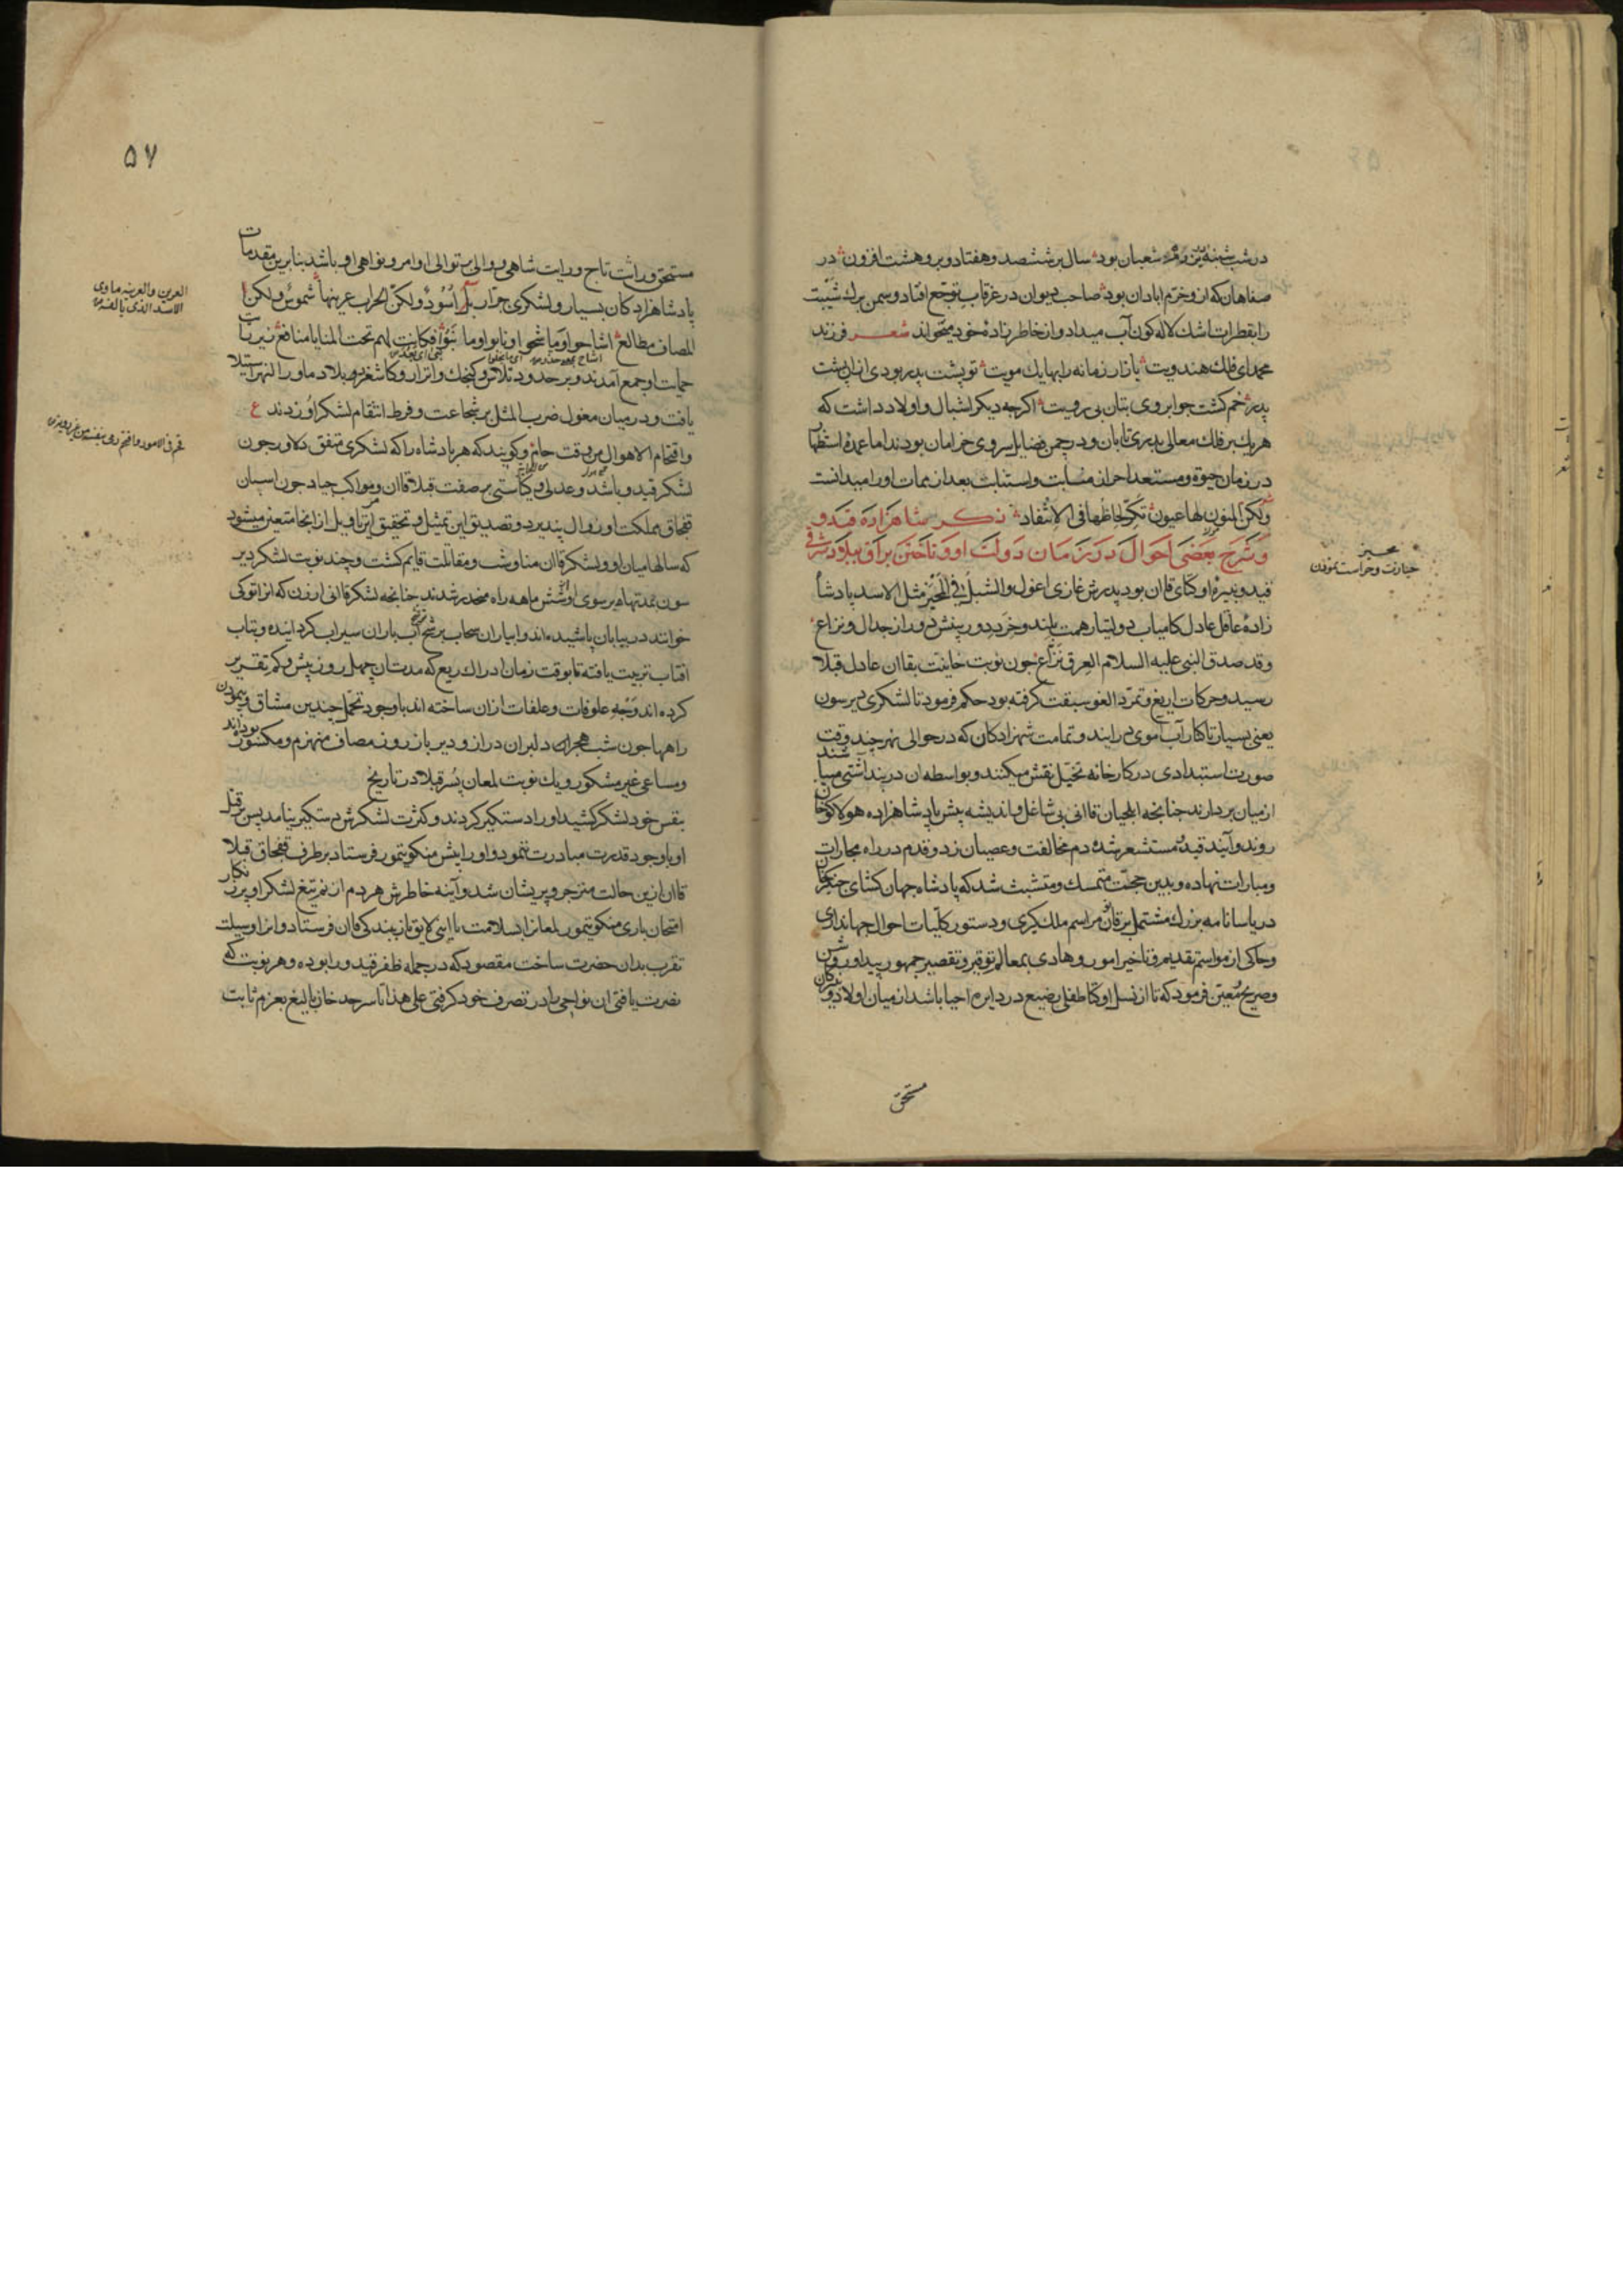 در شب شنبه شعبان بود سال بر ششصد و هفتاد و برو هشت افزون در
صفاهان که ازو خرم ابادان بود صاحب دیوان در غرقاب توجع افتاد و سمن برک شیبت
را بقطرات اشك لاله کون آب میداد و از خاطر زاده خود میخواند شعر فرزند
محمد ای فلك هندویت بازار زمانه را بها یك مویت تو پشت پدر بودی از ان پشت
پدر خم کشت جو ابروی بتان بی رویت اکرچه دیکر اشبال و اولاد داشت که
هر یك بر فلك معالی بدری تابان و در چمن فضایل سروی خرامان بودند اما عمدهٔ استظهار
در زمان حیوة و مستعد احراز و بعد از ممات او را میدانست
ولکن المنون لها عیون تکر لحاظها فی الانتقاد ذکر شاهزاده قیدو
و شرح بعضی احوال در زمان دولت او و تاختن براق ببلاد شرقی
قیدو نبیرهٔ اوکتای قاان بود پدرش غازی اغول والشبل فی المخبر مثل الاسد پادشا
زادهٔ عاقل عادل کامیاب دولتیار همت بلند و خرد دوربینش دور از جدال و نزاع
وقد صدق النبی علیه السلام العرق نزاع جون نوبت خانیت بقاان عادل قبلا
رسید و حرکات اریغ و تمرد الغو سبقت کرفته بود حکم فرمود تا لشکری دیرسون
یعنی بسیار تا کنار آب آموی در ایند و تمامت شهزادکان که در حوالی نهر چند وقت
صورت استبدادی در کارخانه تخیل نقش میکنند و بواسطه ان دربند آشتی میباشند
از میان بردارند جنانجه ایلجیان قاانی بی شاغل و اندیشه پیش پادشاهزاده هولاکو خان
روند و آیند قیدو مستشعر شده دم مخالفت و عصیان زد و قدم در راه مجارات
و مبارات نهاده و بدین حجت متمسك و متشبث شد که پادشاه جهان کشای جنکز خان
در یاسا نامه بزرك مشتمل بر قانون مراسم ملك کیری و دستور کلیات احوال جهانداری
و حاکی از مواسم تقدیم و تاخیر امور و هادی بمعالم توقیر و تقصیر جمهور پیدا و روشن
و صریح معین فرمود که تا از نسل اوکتا طفلی رضیع در دایره احیا باشد از میان اولاد و
مستحق
بحیز
حیازت و حراست نمودن
۵۷
مستحق وراثت تاج و رایت شاهی و والی بر توالی اوامر و نواهی او باشد بنابرین مقدمات
پادشاهزادکان بسیار و لشکری جرار بل اسود ولکن الحراب عرینها شموس ولکن
المصاف مطالع اشاحوا وما شحوا ونابوا وما نبوا فکانت لهم تحت المنایا منافع نیز با
حمایت او جمع آمدند و بر حدود تلاس و کنجك و اترار و کاشغر و بلاد ماورا النهر استیلا
یافت و در میان مغول ضرب المثل بر شجاعت و فرط انتقام لشکر او زدند ع
واقتحام الاهوال من وقت حام و کویند که هر پادشاه را که لشکری متفق دلاور جون
لشکر قیدو باشد و عدلی و یکتاستی بر صفت قبلا قاان و مواکب جیاد جون اسپان
قفجاق مملکت او زوال نپذیرد و تصدیق این تمثیل و تحقیق این تاویل از انجا متعین میشود
که سالها میان او و لشکر قاان مناوشت و مقاتلت قایم کشت و چند نوبت لشکر دیر
سون بمدتها بر سوی او شش ماهه راه منحدر شدند جنانجه لشکر قاانی ارزن که انرا توکی
خوانند در بیابان پاشیده اند و ابیاران سحاب برشح آب باران سیراب کردانیده و بتاب
افتاب تربیت یافته تا بوقت زمان ادراك ریع که مدت ان چهل روز بیش و کم تقدیر
کرده اند وجه علوفات و علفات از ان ساخته اند با وجود تحمل چندین مشاق و پیمودن
راهها جون شب هجران دلبران دراز و دیر باز روز مصاف منهزم و مکسور بودند
و مساعی غیر مشکور و یك نوبت لمعان پسر قبلا در تاریخ
بنفس خود لشکر کشید او را دستکیر کردند و کثرت لشکرش دستکیر نیامد پس
او با وجود قدرت مبادرت ننمود و او را پیش منکو تیمور فرستاد بر طرف قفجاق قبلا
قاان ازین حالت منزجر و پریشان شد و آینه خاطرش هر دم از نم تیغ لشکر او پر زنکار
امتحان باری منکو تیمور لمعانرا بسلامت با ایلچی لایق از بندکی قاان فرستاد و انرا وسیلت
تقرب بدان حضرت ساخت مقصود که در جمله ظفر قیدو را بوده و هر نوبت که
نصرت یافتی ان نواحی را در تصرف خود کرفتی علی هذا تا سرحد خان بالیغ بعزم ثابت
العرین والعرینه ماوی
الاسد الذی یالفه